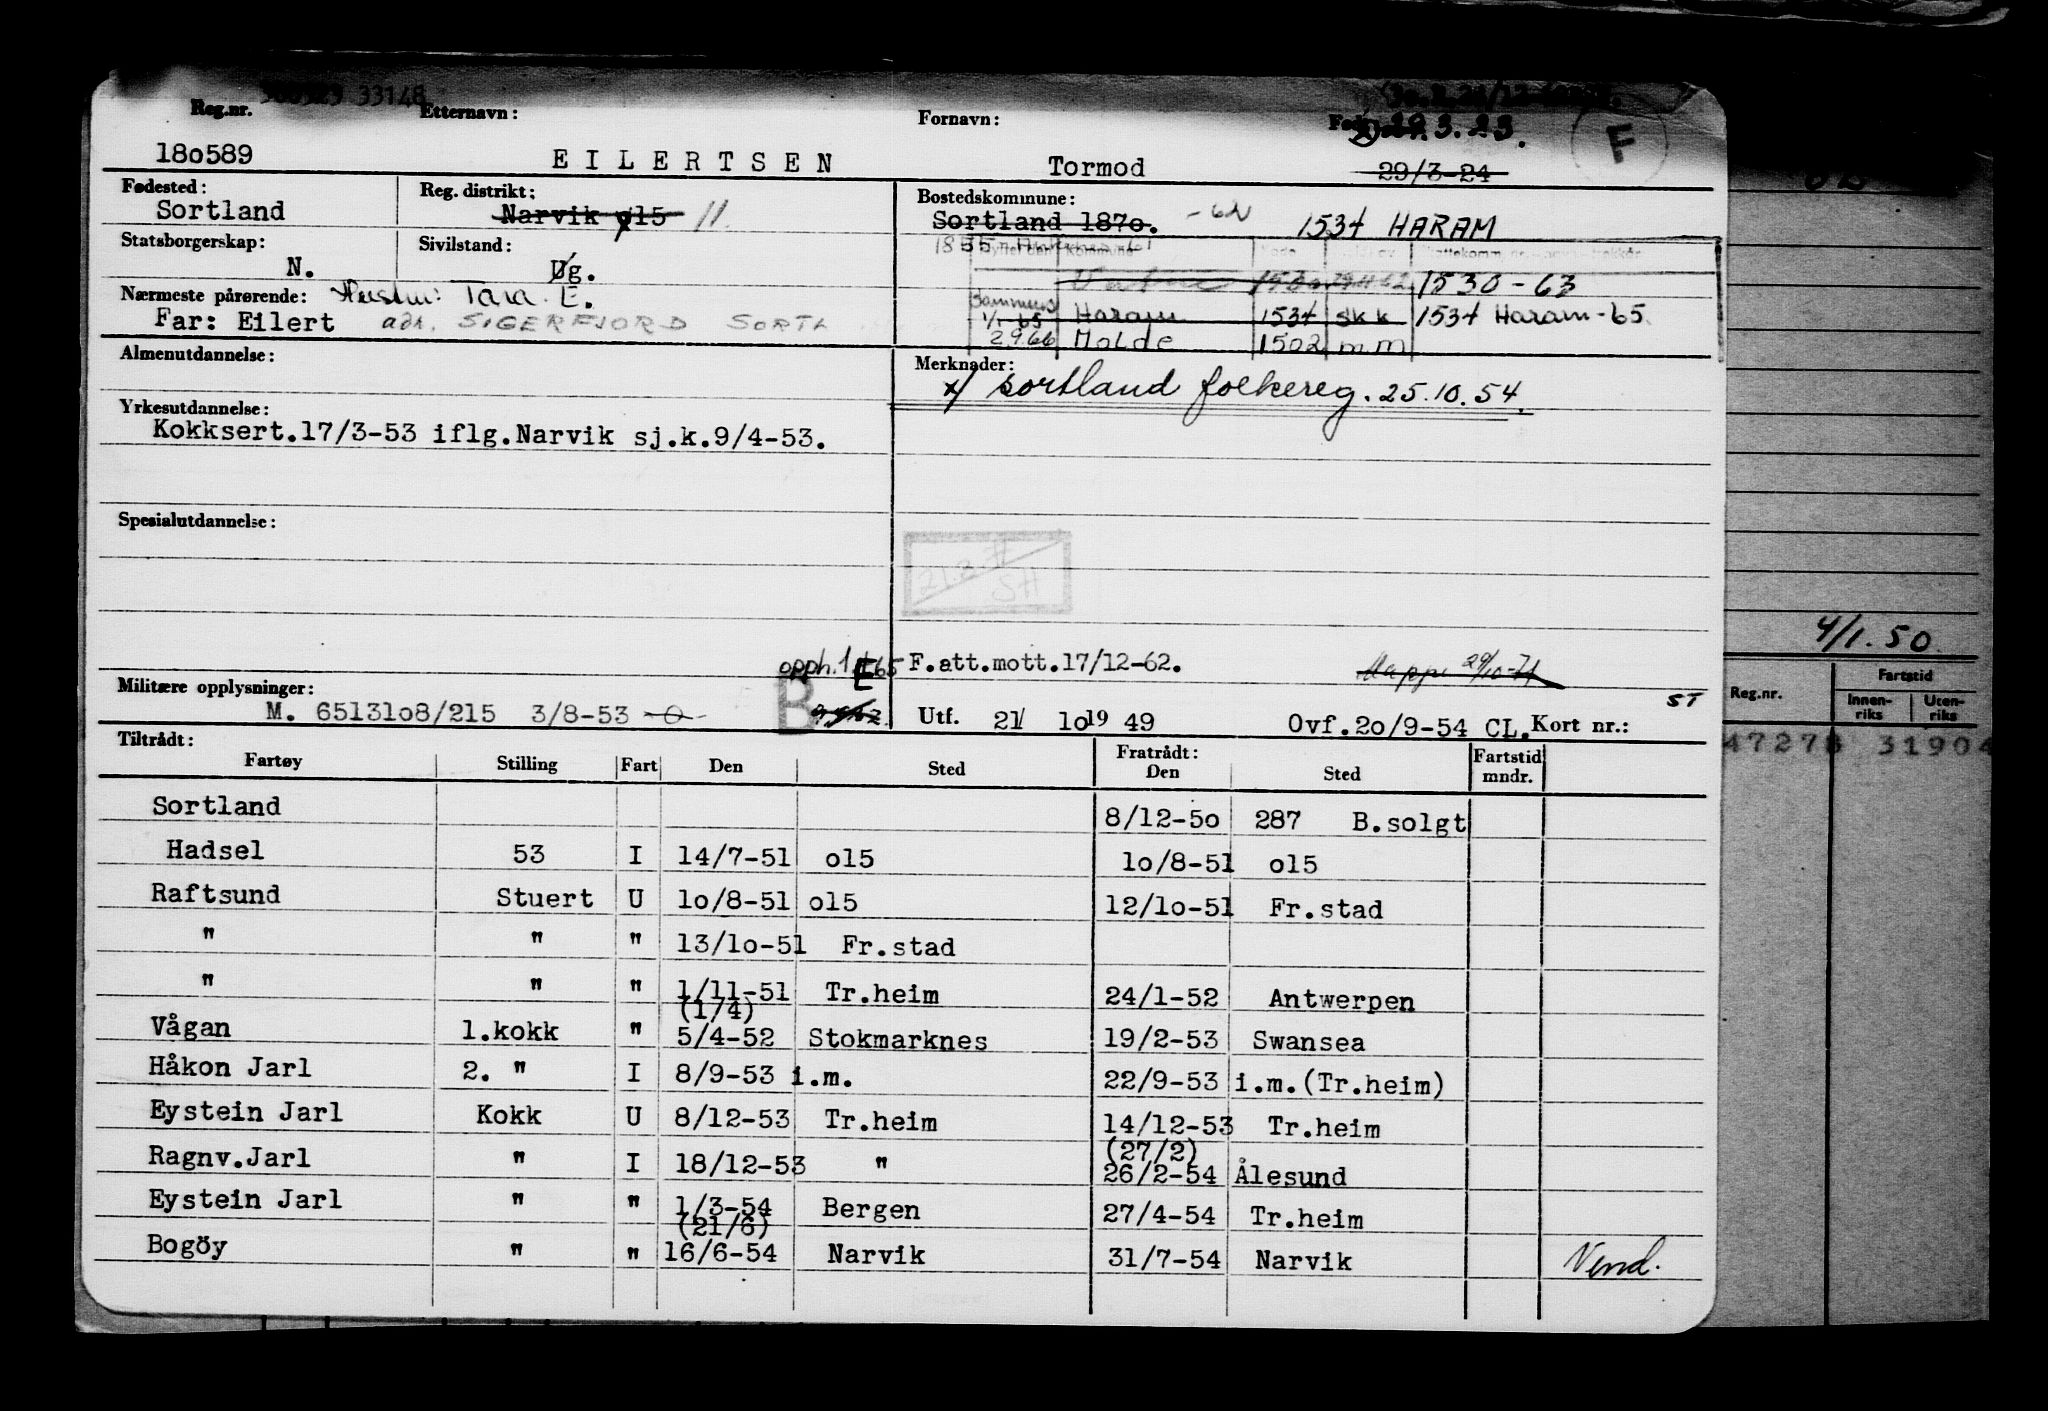 33148
Reg.nr. Etternavn: Fornavn:
29.3.23.
180589 EILERTSEN Tormod 29/3-24
F
Fødested: Reg. distrikt: Bostedskommune:
Sortland Narvik o15 11. Sortland 1870. -62 1534 HARAM
Statsborgerskap: Sivilstand: 1855
N. Ug. 1530-63
Nærmeste pårørende: Hustru: Tara E.
Haram 1534 SKK 1534 Haram-65.
Far: Eilert adr. SIGERFJORD SORTL
2.9.66 Molde 1502 mm
Almenutdannelse: Merknader:
x/ Sortland folkereg. 25.10.54.
Yrkesutdannelse:
Kokksert.17/3-53 iflg.Narvik sj.k.9/4-53.
Spesialutdannelse:
SH
4/1.50
opph. F.att.mott.17/12-62. Mappe 29/10-71
Militære opplysninger: E
M. 6513108/215 3/8-53 -0- B Utf. 21/ 10 19 49 Ovf.20/9-54 CL. Kort nr.: ST
Reg.nr. Fartstid
Innenriks Utenriks
47278 31904
Tiltrådt: Fratrådt:
Fartøy Stilling Fart Den Sted Den Sted Fartstid mndr.
Sortland 8/12-50 287 B.solgt
Hadsel 53 I 14/7-51 o15 10/8-51 o15
Raftsund Stuert U 10/8-51 o15 12/10-51 Fr.stad
" " " 13/10-51 Fr.stad
" " " 1/11-51 Tr.heim 24/1-52 Antwerpen
(1/4)
Vågan 1.kokk " 5/4-52 Stokmarknes 19/2-53 Swansea
Håkon Jarl 2. " I 8/9-53 i.m. 22/9-53 i.m.(Tr.heim)
Eystein Jarl Kokk U 8/12-53 Tr.heim 14/12-53 Tr.heim
(27/2)
Ragnv.Jarl " I 18/12-53 " 26/2-54 Ålesund
Eystein Jarl " " 1/3-54 Bergen 27/4-54 Tr.heim
(21/6)
Bogöy " " 16/6-54 Narvik 31/7-54 Narvik Vend.